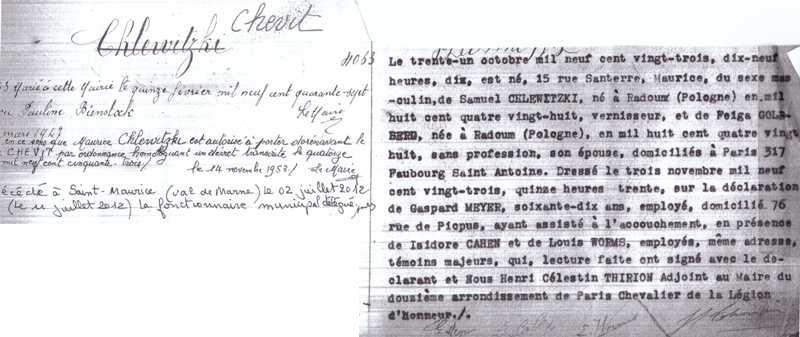 Chevit
Chlewitzki
4063
Marié à cette Mairie le quinze février mil neuf cent quarante-sept
Pauline Bienstock
Le Maire
mars 1947
en ce sens que Maurice Chlewitzki est autorisé à porter dorénavant le
CHEVIT par ordonnance homologuant un décret transcrite le quatorze
mil neuf cent cinquante trois/.
le 14 novembre 1953/. Le Maire
écédé à Saint-Maurice (Val de Marne) le 02 juillet 2012
(Le 11 juillet 2012) le fonctionnaire municipal délégué,
Le trente-un octobre mil neuf cent vingt-trois, dix-neuf
heures, dix, est né, 15 rue Santerre, Maurice, du sexe mas
-culin,de Samuel CHLEWITZKI, né à Radoum (Pologne) en mil
huit cent quatre vingt-huit, vernisseur, et de Feiga GOLD-
BERG, née à Radoum (Pologne), en mil huit cent quatre vingt
huit, sans profession, son épouse, domiciliés à Paris 317
Faubourg Saint Antoine. Dressé le trois novembre mil neuf
cent vingt-trois, quinze heures trente, sur la déclaration
de Gaspard MEYER, soixante-dix ans, employé, domicilié 76
rue de Picpus, ayant assisté à l'accouchement, en présence
de Isidore CAHEN et de Louis WORMS, employés, même adresse,
témoins majeurs, qui, lecture faite ont signé avec le dé-
clarant et Nous Henri Célestin THIRION Adjoint au Maire du
douzième arrondissement de Paris Chevalier de la Légion
d'Honneur./.